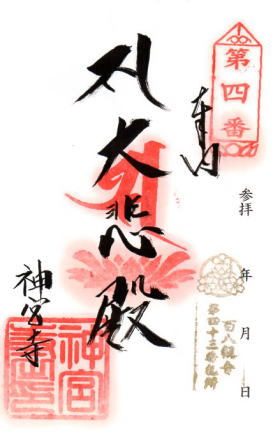 第四番
奉拝
参拝 年 月 日
百八観音
第四十三番礼所
札大悲殿
神宮寺
神宮
寺印